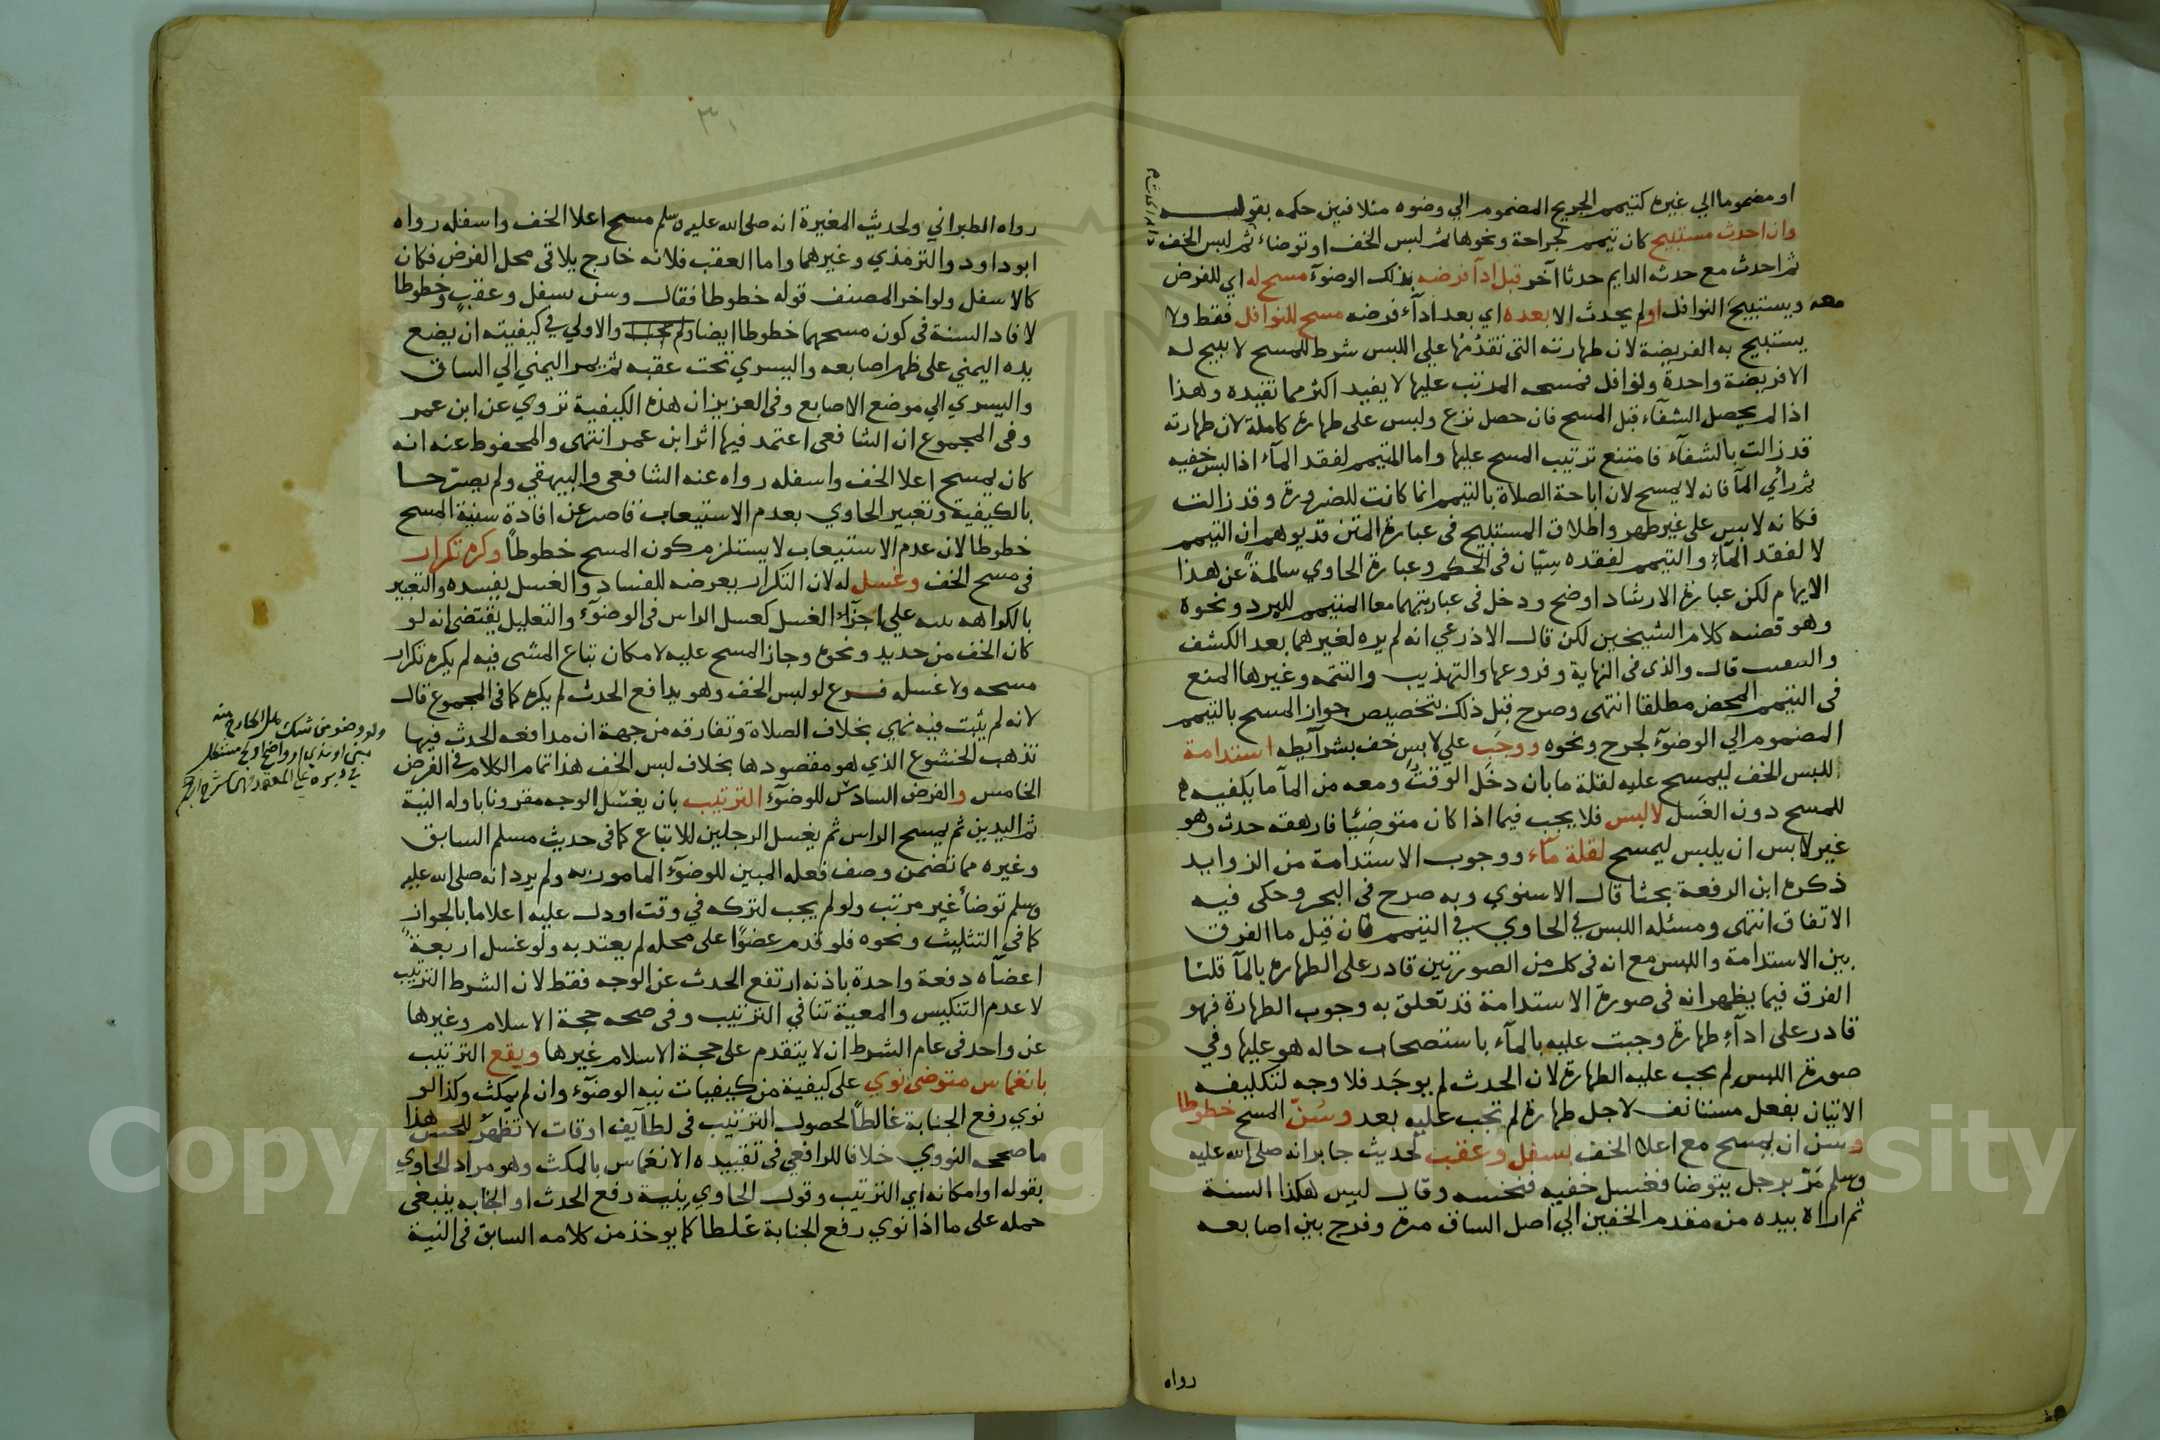 او مضموما الي غيره كتيمم الجريح المضموم الي وضوه مثلا فبين حكمه بقوله
وان احدث مستبيح كان تيمم لجراحة ونحوها ثم لبس الخف او توضاء ثم لبس الخف
ثم احدث مع حدثه الدايم حدثا آخر قبل ادآ فرضه بذلك الوضوء مسح له اي للفرض
معه ويستبيح النوافل او لم يحدث الا بعده اي بعد ادآء فرضه مسح للنوافل فقط ولا
يستبيح به الفريضة لان طهارته التى تقدمها على اللبس شرط للمسح لا يبيح له
الا فريضة واحدة ونوافل فمسحه المرتب عليها لا يفيد اكثر مما تفيده وهذا
اذا لم يحصل الشفآء قبل المسح فان حصل نزع ولبس على طهارة كاملة لان طهارته
قد زالت بالشفآء فامتنع ترتيب المسح عليها واما المتيمم لفقد المآء اذا لبس خفيه
ثم رأي المآ فانه لا يمسح لان اباحة الصلاة بالتيمم انما كانت للضرورة وقد زالت
فكانه لابس على غير طهر واطلاق المستبيح فى عبارة المتن قد يوهم ان التيمم
لا لفقد المآء والتيمم لفقده سيّان فى الحكم وعبارة الحاوي سالمة عن هذا
الايهام لكن عبارة الارشاد اوضح ودخل فى عبارتيهما معا المتيمم للبرد ونحوه
وهو قضيه كلام الشيخين لكن قال الاذرعي انه لم يره لغيرهما بعد الكشف
قال والذى فى النهاية وفروعها والتهذيب والتتمه وغيرها المنع
فى التيمم المحض مطلقا انتهى وصرح قبل ذلك بتخصيص جواز المسح بالتيمم
المضموم الي الوضوء لجرح ونحوه ووجب علي لابس خف بشرآيطه استدامة
اللبس الخف ليمسح عليه لقلة ما بان دخل الوقت ومعه من المآ ما يكفيه
للمسح دون الغسل لا لبس فلا يجب فيما اذا كان متوضيًا فارهقه حدث وهو
غير لابس ان يلبس ليمسح لقلة مآء ووجوب الاستدامة من الزوايد
ذكره ابن الرفعة بحثا قال الاسنوي وبه صرح فى البحر وحكى فيه
الاتفاق انتهى ومسئله اللبس في الحاوي في التيمم فان قيل ما الفرق
بين الاستدامة واللبس مع انه فى كل من الصورتين قادر على الطهارة بالمآ قلنا
الفرق فيما يظهر انه فى صورة الاستدامة قد تعلق به وجوب الطهارة فهو
قادر على ادآء طهارة وجبت عليه بالمآء باستصحاب حاله هو عليها وفي
صورة اللبس لم يجب عليه الطهارة لان الحدث لم يوجد فلا وجه لتكليفه
الاتيان بفعل مستانف لاجل طهارة لم تجب عليه بعد وسُنّ المسح خطوطا
وسن ان يمسح مع اعلا الخف بسفل وعقب لحديث جابر انه صلى الله عليه
وسلم مَرّ برجل يتوضا فغسل خفيه فنخسه وقال ليس هكذا السنة
ثم اراه بيده من مقدم الخفين الي اصل الساق مرة وفرج بين اصابعه
رواه
رواه الطبراني ولحديث المغيرة انه صلى الله عليه وسلم مسح اعلا الخف واسفله رواه
ابو داود والترمذي وغيرهما واما العقب فلانه خارج يلاقى محل الفرض فكان
كالاسفل ولو اخر المصنف قوله خطوطا فقال وسن بسفل وعقب وخطوطا
لافاد السنة فى كون مسحهما خطوطا ايضا ولم يجب والاولي في كيفيته ان يضع
يده اليمني على ظهر اصابعه واليسري تحت عقبه ثم يمر اليمني الي الساق
واليسري الي موضع الاصابع وفى العزيز ان هذه الكيفية تروي عن ابن عمر
وفى المجموع ان الشافعى اعتمد فيها اثر ابن عمر انتهى والمحفوظ عنه انه
كان يمسح اعلا الخف واسفله رواه عنه الشافعى والبيهقي ولم يصرحا
بالكيفية وتعبير الحاوي بعدم الاستيعاب قاصر عن افادة سنية المسح
خطوطا لان عدم الاستيعاب لا يستلزم كون المسح خطوطاً وكره تكرار
فى مسح الخف وغسل له لان التكرار يعرضه للفساد والغسل يفسده والتعبير
بالكراهه علي اجزآء الغسل كغسل الراس فى الوضوء والتعليل يقتضى انه لو
كان الخف من حديد ونحوه وجاز المسح عليه لامكان تباع المشى فيه لم يكره تكرار
مسحه ولا غسله فرع لو لبس الخف وهو يدافع الحدث لم يكره كما فى المجموع قال
لانه لم يثبت فيه نهي بخلاف الصلاة وتفارقه من جهة ان مدافعه الحدث فيها
تذهب الخشوع الذي هو مقصودها بخلاف لبس الخف هذا تمام الكلام فى الفرض
الخامس والفرض السادس للوضوء الترتيب بان يغسل الوجه مقرونا باوله النية
ثم اليدين ثم يمسح الراس ثم يغسل الرجلين للاتباع كما فى حديث مسلم السابق
وغيره مما تضمن وصف فعله المبين للوضوء المامور به ولم يرد انه صلى الله عليه
وسلم توضأ غير مرتب ولو لم يجب لتركه في وقت اودل عليه اعلاما بالجواز
كما فى التثليث ونحوه فلو قدم عضوًا على محله لم يعتد به ولو غسل اربعة
اعضآه دفعة واحدة باذنه ارتفع الحدث عن الوجه فقط لان الشرط الترتيب
لا عدم التنكيس والمعية تنافي الترتيب وفى صحه حجة الاسلام وغيرها
عن واحد فى عام الشرط ان لا يتقدم على حجة الاسلام غيرها ويقع الترتيب
بانغماس متوضى نوي على كيفية من كيفيات نيه الوضوء وان لم يمكث وكذا لو
نوي رفع الجنابة غالطاً لحصول الترتيب فى لطآيف اوقات لا تظهر للحس هذا
ما صححه النووي خلافا للرافعي فى تقييده الانغماس بالمكث وهو مراد الحاوي
بقوله او امكانه اي الترتيب وقول الحاوي بنية رفع الحدث او الجنابه ينبغى
حمله على ما اذا نوي رفع الجنابة غلطا كما يوخذ من كلامه السابق فى النية